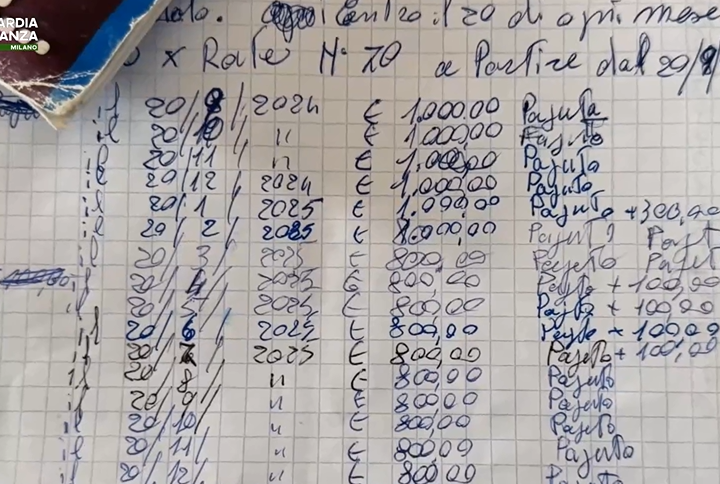 ARDIA
ANZA
MILANO
Entro il 20 di ogni mese
x Rate N° 20 a Partire dal 20/9/
il 20/9/2024 € 1.000,00 Pagata
il 20/10/ " € 1.000,00 Pagato
il 20/11/ " € 1.000,00 Pagato
il 20/12/2024 € 1.000,00 Pagato
il 20/1/2025 € 1.000,00 Pagato +300,00
il 20/2/2025 € 800,00 Pagato
20/3/2025 € 800,00 Pagato
il 20/4/2025 € 800,00 Pagato + 100,00
il 20/5/2025 € 800,00 Pagato + 100,00
il 20/6/2025 € 800,00 Pagato + 100,00
il 20/7/2025 € 800,00 Pagato + 100,00
il 20/8/ " € 800,00 Pagato
il 20/9/ " € 800,00 Pagato
il 20/10/ " € 800,00 Pagato
il 20/11/ " € 800,00 Pagato
il 20/12/ " € 800,00